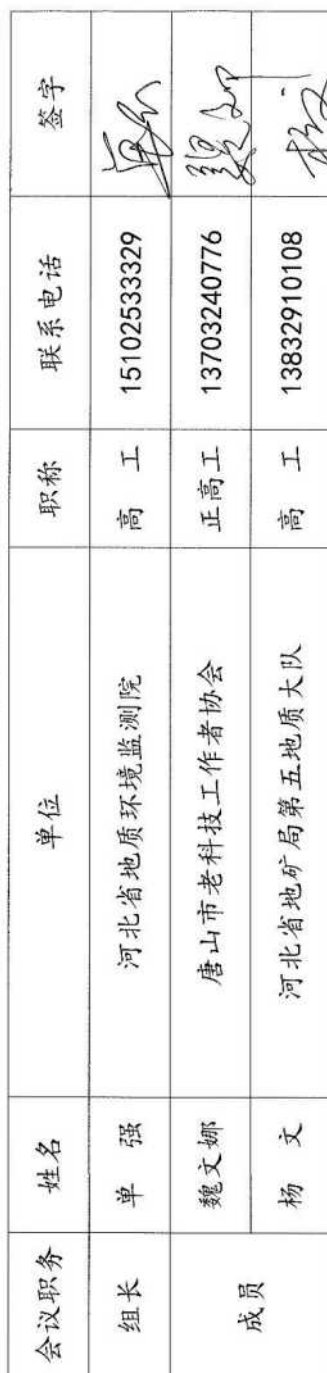 会议职务 姓名 单位 职称 联系电话 签字
组长 单 强 河北省地质环境监测院 高 工 15102533329
成员 魏文娜 唐山市老科技工作者协会 正高工 13703240776
杨 文 河北省地矿局第五地质大队 高 工 13832910108